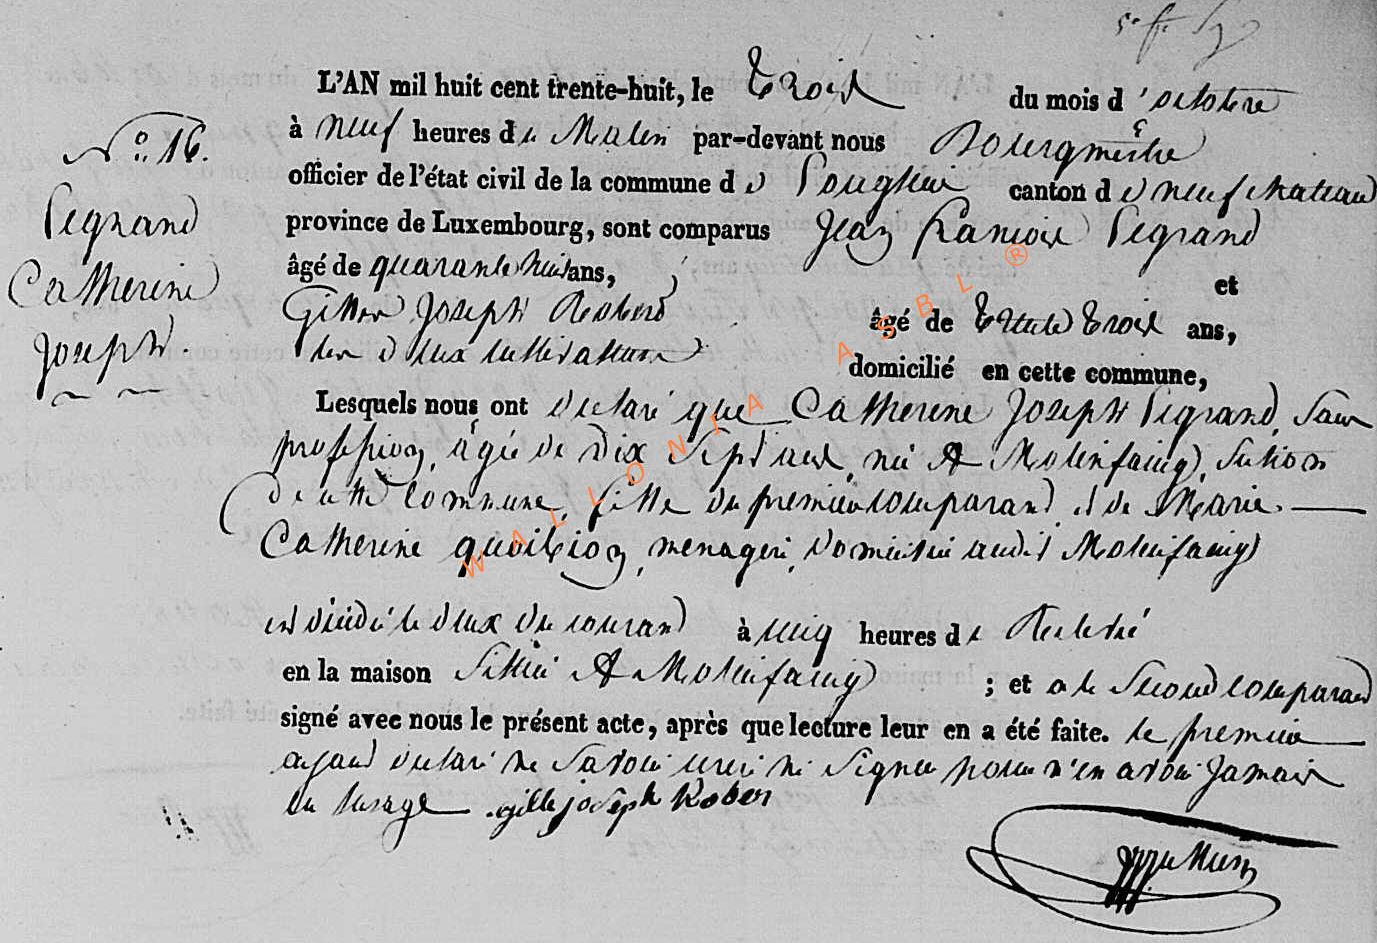 N.° 16.
Legrand
Catherine
Joseph.
L'AN mil huit cent trente-huit, le Trois du mois d'octobre
à neuf heures du Matin par-devant nous Bourgmestre
officier de l'état civil de la commune de Longlier canton de neufchateau
province de Luxembourg, sont comparus Jean francois Legrand
âgé de quarante huit ans, et
Gilles Joseph Robert âgé de Trente Trois ans,
domicilié en cette commune,
Lesquels nous ont declaré que Catherine Joseph Legrand, sans
profession, agée de Dix Sept ans, née A Molinfaing, Section
de cette Commune, fille du premier comparant, et de Marie
Catherine quoibion, menagere, domiciliée audit Molinfaing
est décédée le deux du courant à cinq heures de Relevé
en la maison Située A Molinfaing ; et a le Second comparant
signé avec nous le présent acte, après que lecture leur en a été faite. le premier
ayant declaré ne Savoir ecrire ni Signer pour n'en avoir Jamais
eu lusage gille joseph Rober
WALLONIA ASBL ®